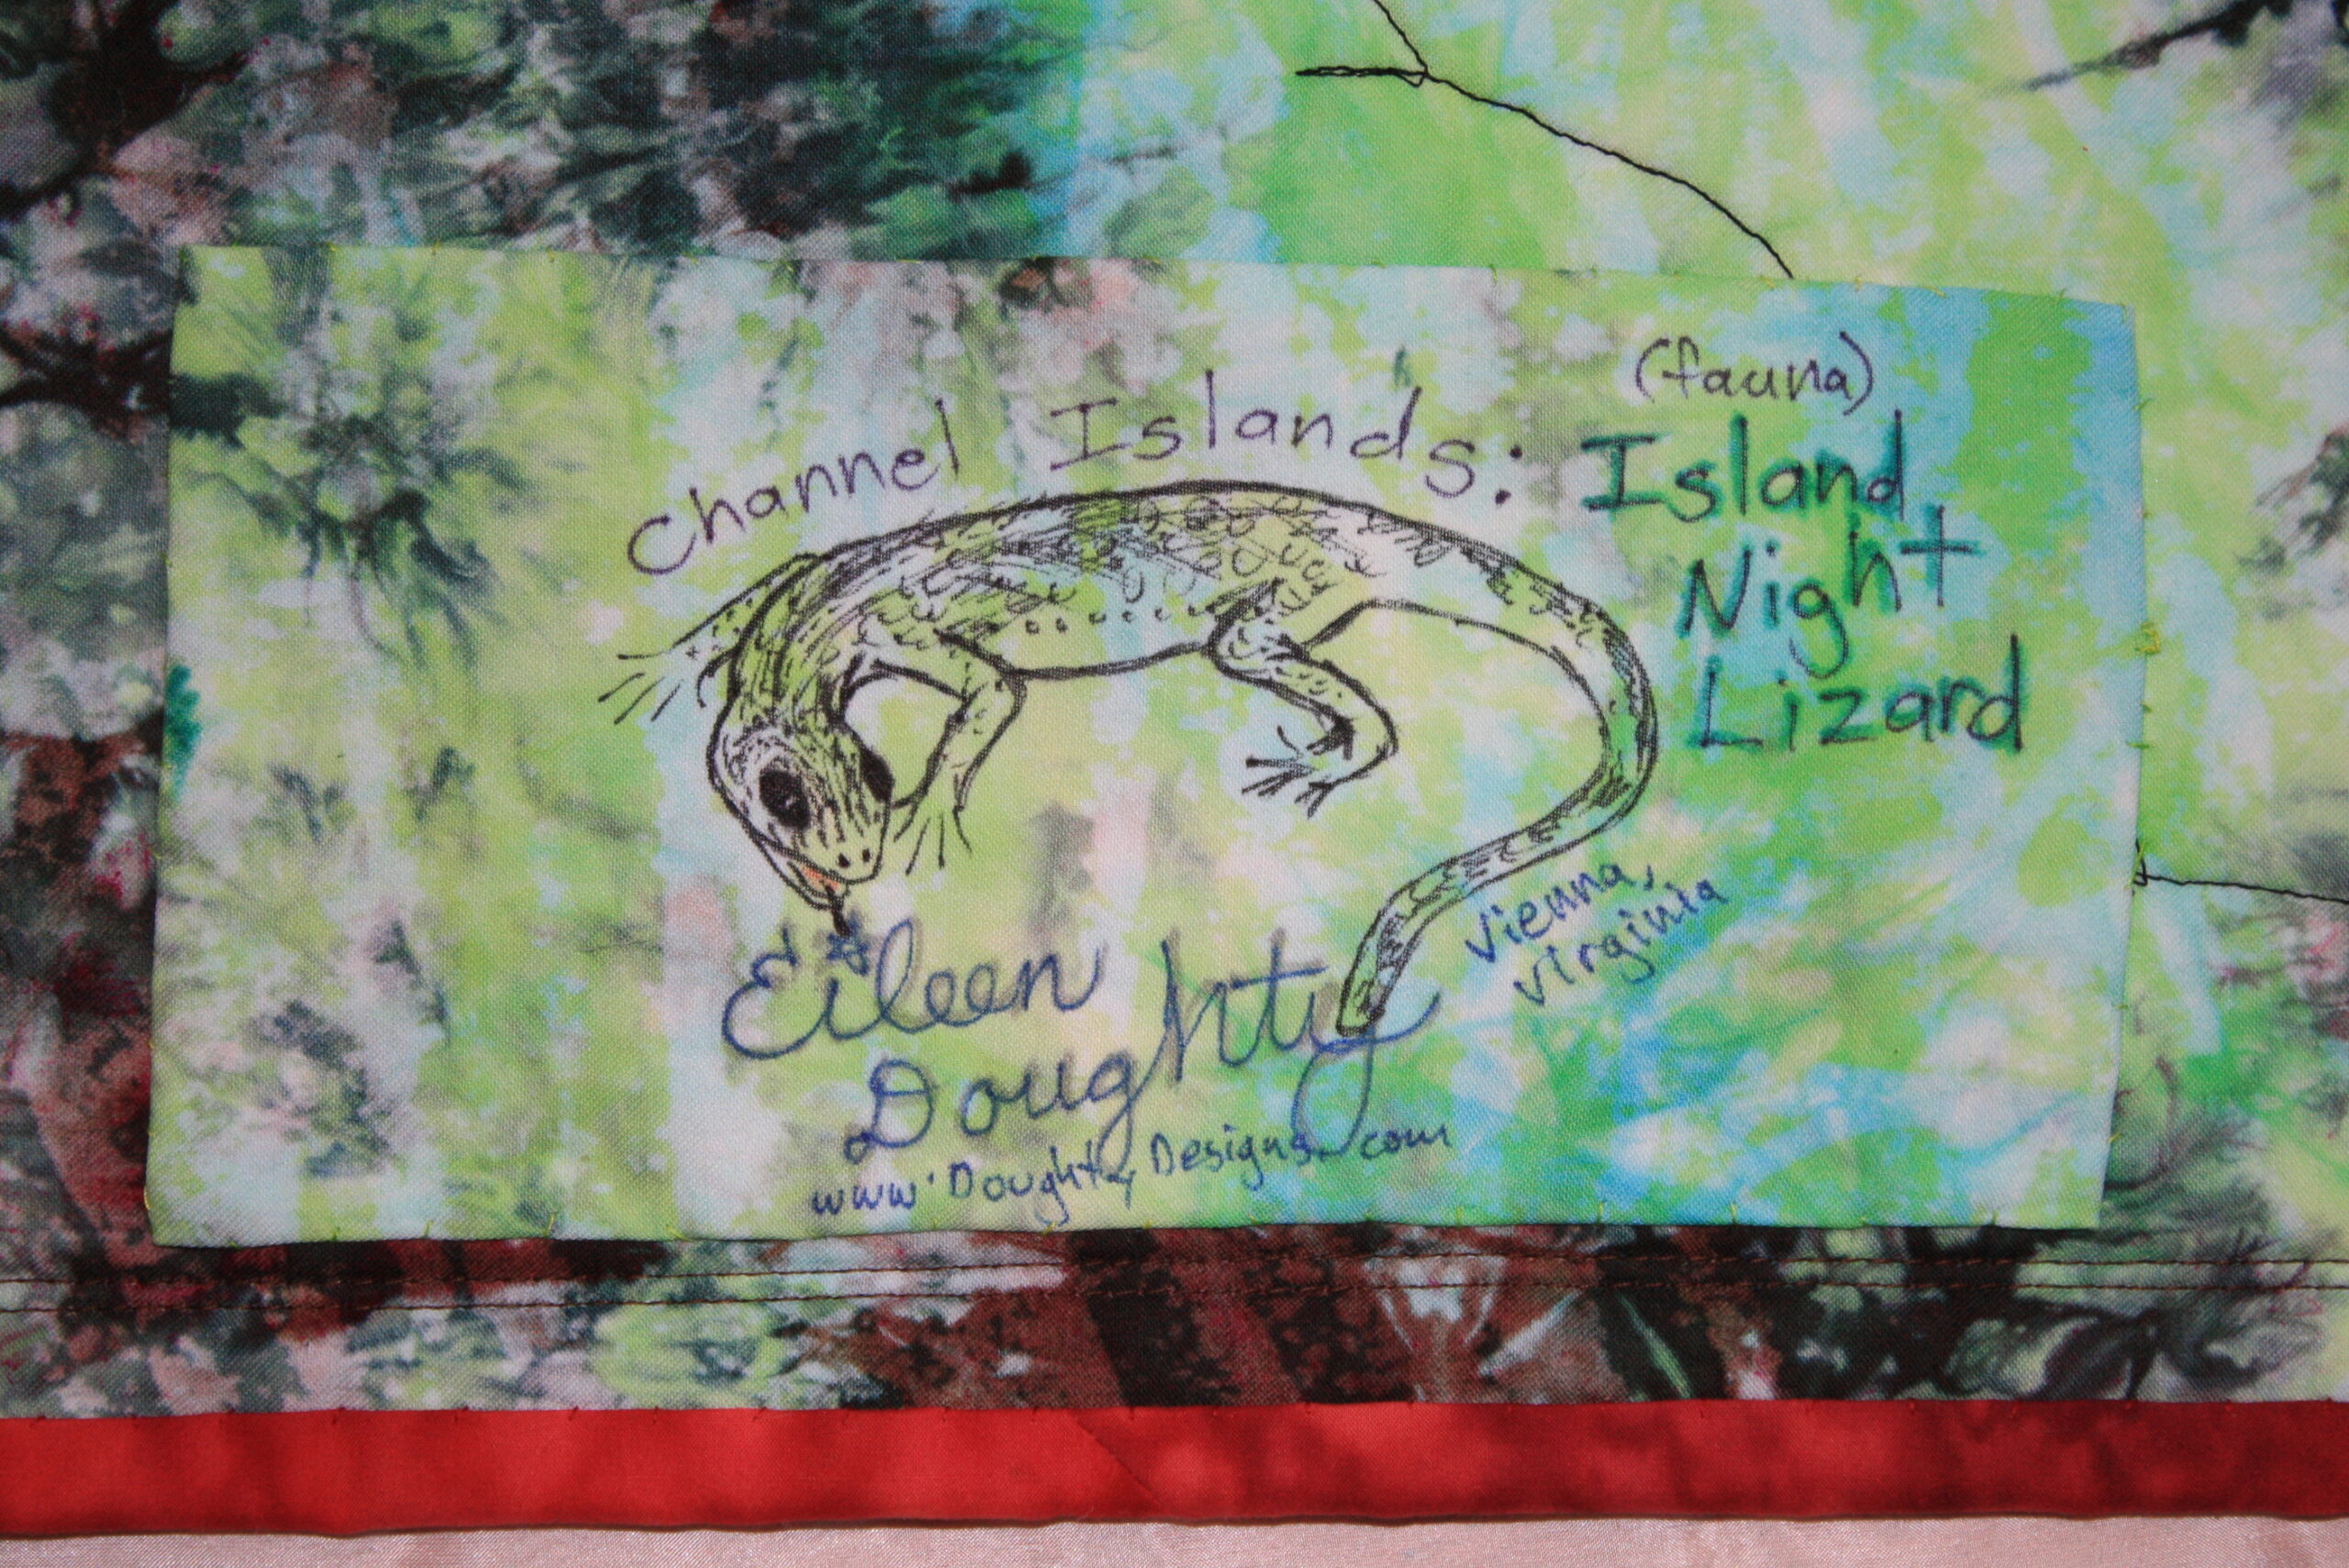 Channel Islands:
(fauna)
Island
Night
Lizard
Vienna,
Virginia
Eileen
Doughty
www.DoughtyDesigns.com